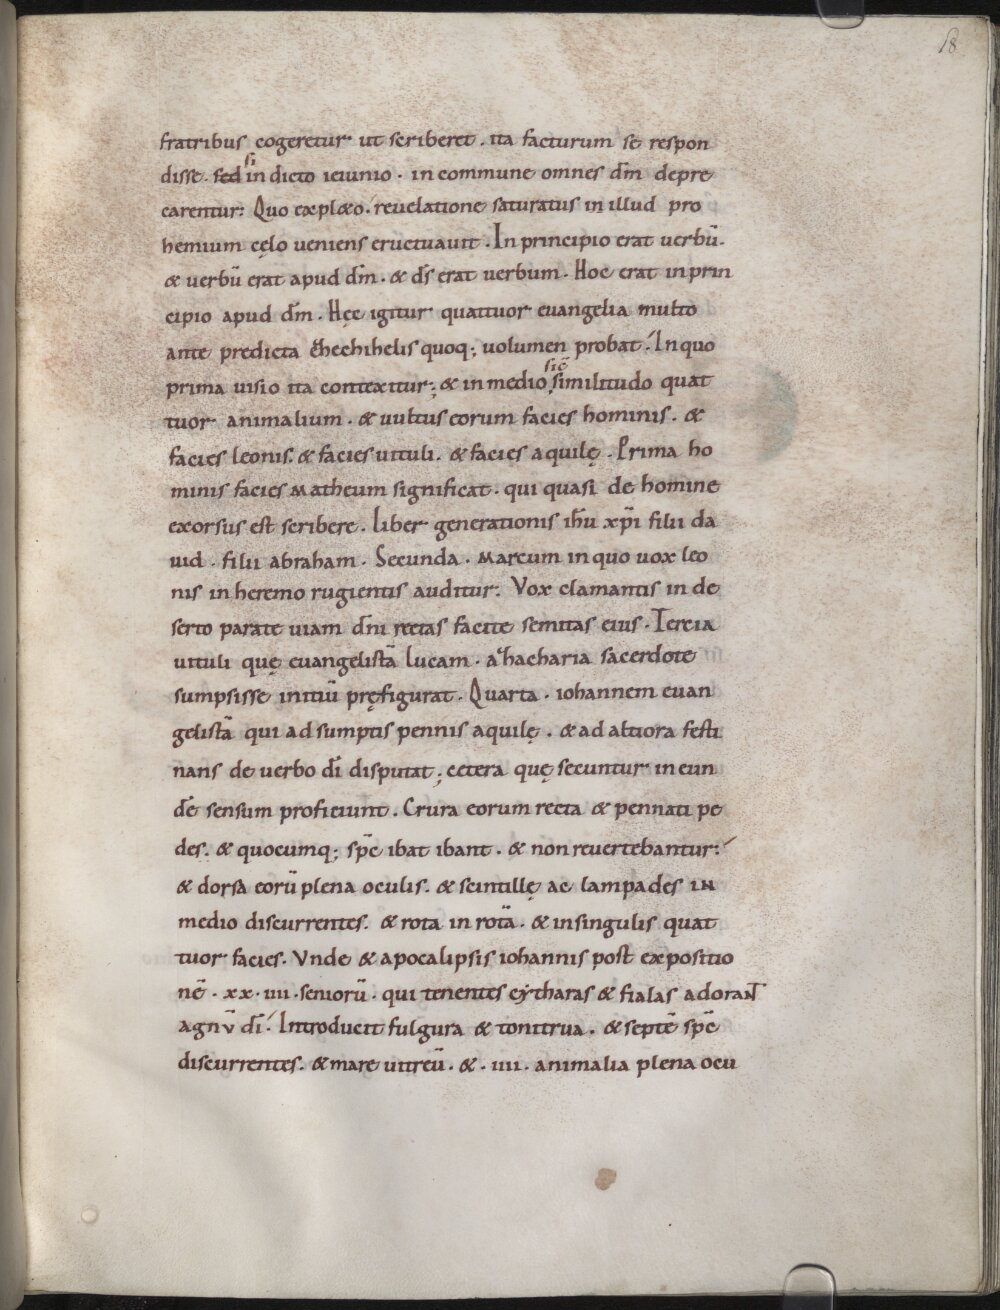 18
fratribus cogeretur ut scriberet . ita facturum se respon
disse . sed si in dicto ieiunio . in commune omnes dm̄ depre
carentur: Quo expl&o . reuelatione saturatus in illud pro
hemium cęlo ueniens eructuauit . In principio erat uerbū .
& uerbū erat apud dm̄ . & ds̄ erat uerbum . Hoc erat in prin
cipio apud dm̄ . Hęc igitur quattuor euangelia multo
ante predicta hechihelis quoq; uolumen probat . In quo
prima uisio ita contexitur; & in medio sic̄ similitudo quat
tuor animalium . & uultus eorum facies hominis . &
facies leonis . & facies uituli . & facies aquilę . Prima ho
minis facies Matheum significat . qui quasi de homine
exorsus est scribere . Liber generationis ih̄u xp̄i filii da
uid . filii abraham . Secunda . Marcum in quo uox leo
nis in heremo rugientis auditur: Vox clamantis in de
serto parate uiam dn̄i rectas facite semitas eius . Tercia
uituli quę euangelistā Lucam . a hacharia sacerdote
sumpsisse initiū pręfigurat . Quarta . iohannem euan
gelistā qui ad sumptis pennis aquilę . & ad altiora festi
nans de uerbo dī disputat; cetera quę secuntur in eun
dē sensum proficiunt . Crura eorum recta & pennati pe
des . & quocumq; sp̄c ibat ibant . & non reuertebantur:
& dorsa eorū plena oculis . & scintillę ac lampades IN
medio discurrentes . & rota in rotā . & in singulis quat
tuor facies . Vnde & apocalipsis iohannis post expositio
nē . xx . iiii . seniorū . qui tenentes cẏtharas & fialas adoraNT
agnv dī . Introducit fulgura & tonitrua . & septē sp̄c
discurrentes . & mare uitreū . & . iiii . animalia plena ocu